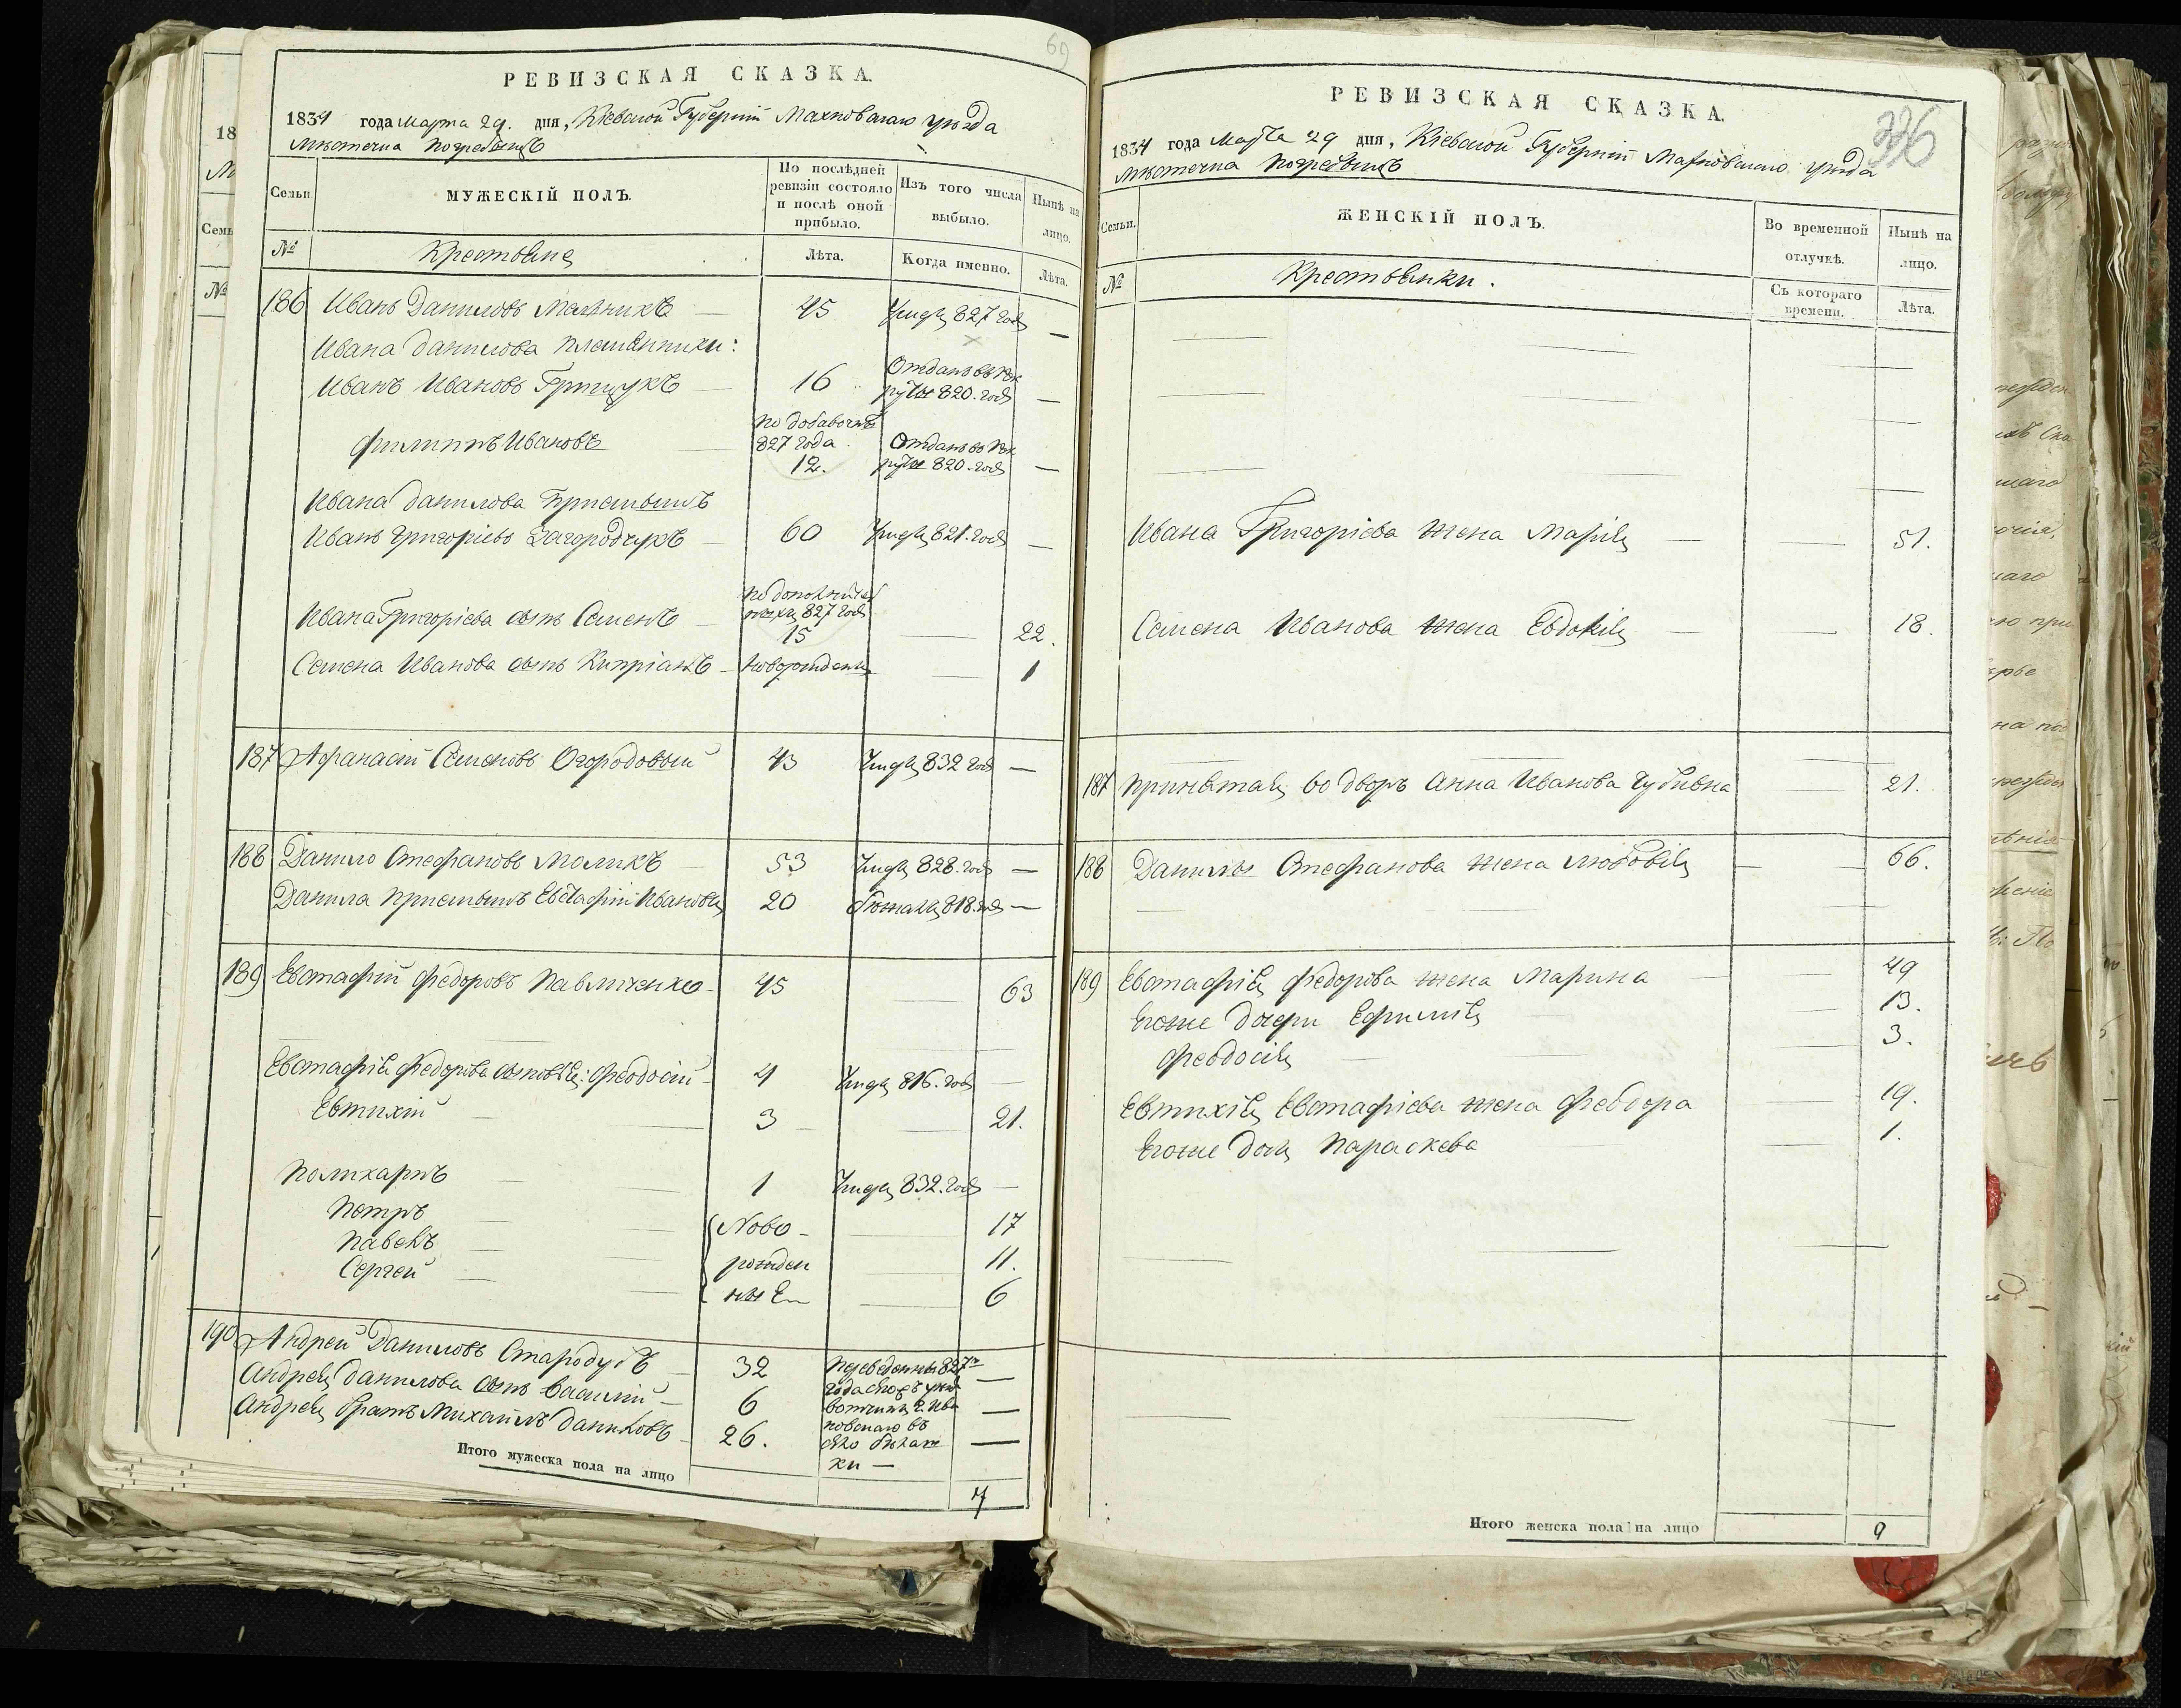 69
РЕВИЗСКАЯ СКАЗКА.
1834 года Марта 29. дня, Кіевской Губерніи Махновскаго уѣзда
Мѣстечка Погребищъ
Семьи
МУЖЕСКІЙ ПОЛЪ.
По послѣдней ревизіи состояло и послѣ оной прибыло.
Изъ того числа выбыло.
Нынѣ на лицо.
№
Крестьяне
Лѣта.
Когда именно.
Лѣта.
186 Иванъ Даниловъ Мельникъ — 45 Умеръ 827 года —
Ивана Данилова племянники:
Иванъ Ивановъ Грищукъ — 16 Отданъ въ рекруты 820. года —
Филиппъ Ивановъ
по добавочной 827 года 12.
Отданъ въ рекруты 820. года —
Ивана Данилова пріемышъ
Иванъ Григорьевъ Загороднукъ — 60 Умеръ 821. года —
Ивана Григоріева сынъ Семенъ —
по дополнительнымъ 827 года 15 — 22.
Семена Иванова сынъ Кипріанъ — новорожденъ — 1
187 Афанасій Семеновъ Огородовый 43 Умеръ 832 года —
188 Данило Стефановъ Моликъ — 53 Умеръ 828. года —
Данила пріемышъ Евстафій Ивановъ 20 бѣжалъ 818. года —
189 Евстафій Федоровъ Павличенко — 45 — 63
Евстафія Федорова сыновья: Феодосій — 4 Умеръ 816. года —
Евтихій — 3 — 21.
Поликарпъ — 1 Умеръ 832. года —
Петръ — Ново- — 17
Павелъ — рожден — 11.
Сергей — ные — 6
190 Андрей Даниловъ Стародубъ — 32
Андрея Данилова сынъ Василій — 6
Андрея братъ Михайлъ Даниловъ — 26.
переведены 827
года
ки —
Итого мужеска пола на лицо 7
РЕВИЗСКАЯ СКАЗКА.
336
1834 года Марта 29 дня, Кіевской Губерніи Махновскаго уѣзда
Мѣстечка Погребищъ
Семьи.
ЖЕНСКІЙ ПОЛЪ.
Во временной отлучкѣ.
Нынѣ на лицо.
№
Крестьянки.
Съ котораго времени.
Лѣта.
Ивана Григоріева жена Марія — — 51.
Семена Иванова жена Евдокія — — 18.
187 принятая во дворъ Анна Иванова Губивна — 21.
188 Данилы Стефанова жена Любовія — 66.
189 Евстафія Федорова жена Марина — 49
Егоже дочери Ефимія — 13.
Феодосія — — 3.
Евтихія Евстафіева жена Феодора — 19.
Егоже дочь Параскева — 1.
Итого женска пола на лицо 9